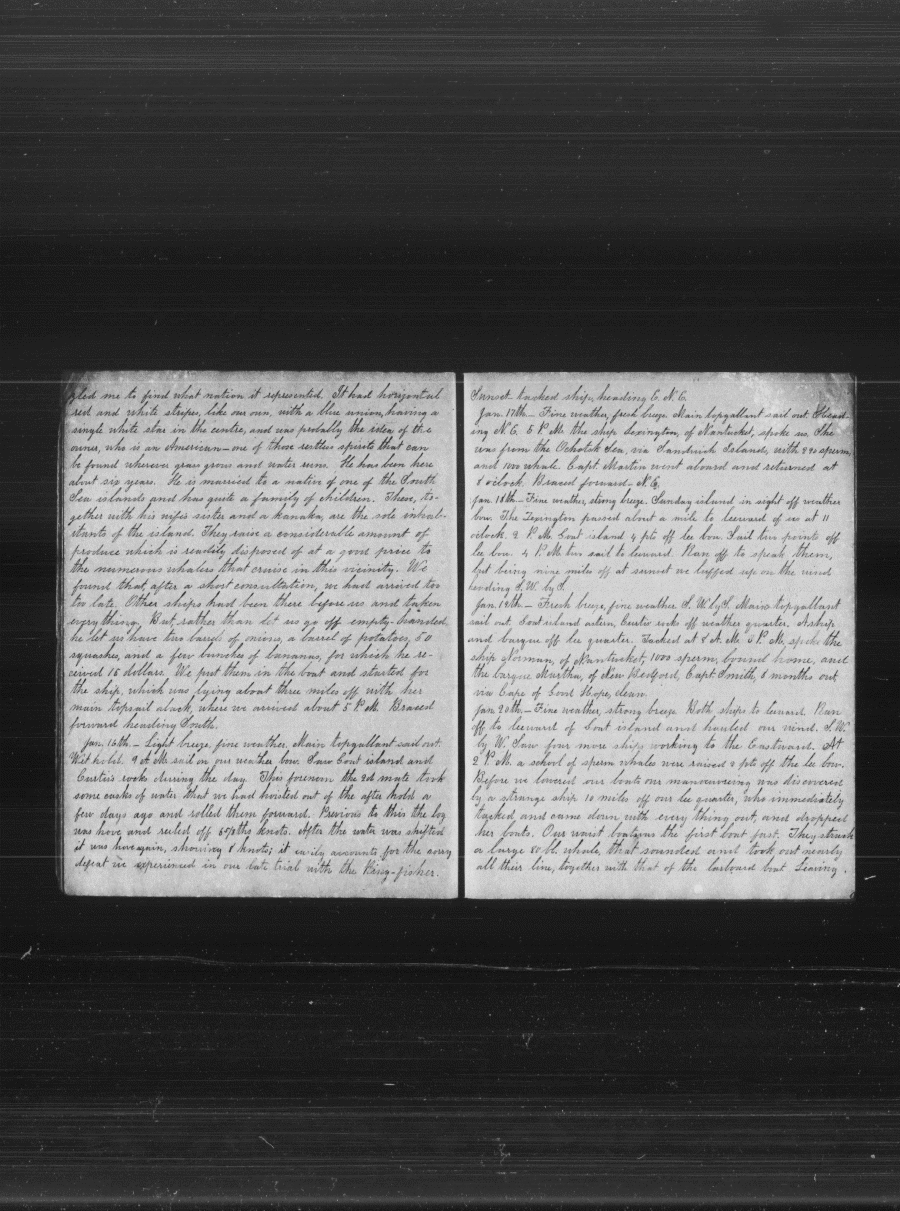 gled me to find what nation it repesented. It had horizontal
red and white stripes, like our own, with a blue union, having a
single white star in the centre, and was probably the idea of the
owner, who is an American—one of those restless spirits that can
be found wherever grass grows and water runs. He has been here
about six years. He is married to a native of one of the South
Sea islands and has quite a family of children. These, to-
gether with his wifes sister and a kanaka, are the sole inhab-
itants of the island. They raise a considerable amount of
produce which is readily disposed of at a good price to
the numerous whalers that cruise in this vicinity. We
found that, after a short consultation, we had arrived too
too late. Other ships had been there before us and taken
everything. But, rather than let us go off empty-handed,
he let us have two barrels of onions, a barrel of potatoes, 50
squashes, and a few bunches of bananas, for which he re-
ceived 15 dollars. We put them in the boat and started for
the ship, which was lying about three miles off with her
main topsail aback, where we arrived about 5 P.M. Braced
forward heading South.
Jan. 16th.— Light breeze, fine weather. Main topgallant sail out.
9 A.M. sail on our weather bow. Saw Goat island and
Curtis's rocks during the day. This forenoon the 2d mate took
some casks of water that we had hoisted out of the after hold a
few days ago and rolled them forward. Previous to this the log
was hove and reeled off knots. After the water was shifted
it was hove again, showing 8 knots; it easily accounts for the sorry
defeat we experienced in our late trial with the King-fisher.
Sunset tacked ship, heading E.N.E.
Jan. 17th.— Fine weather, fresh breeze. Main topgallant sail out. Head
ing N.E. 5 P.M. the ship Lexington, of Nantucket, spoke us. She
was from the Ochotsk Sea, via Sandwich Islands, with sperm,
and 1000 whale. Capt. Martin went aboard and returned at
8 oclock. Braced forward—N.E.
Jan. 18th.—Fine weather, strong breeze. Sunday island in sight off weather
bow. The Lexington passed about a mile to leeward of us at 11
oclock. 2 P.M. Goat island 4 pts off lee bow. Sail two points off
lee bow. 4 P.M. two sail to leeward. Ran off to speak them,
but being nine miles off at sunset we luffed up on the wind
heading S.W. by S.
Jan. 19th.— Fresh breeze, fine weather. S.W. by S. Main topgallant
sail out. Goat island astern, Curtis rocks off weather quarter. A ship
and barque off lee quarter. Tacked at 8 A.M. 5 P.M. spoke the
ship Norman, of Nantucket, 1000 sperm, bound home, and
the barque Martha, of New Bedford, Capt. Smith, 8 months out
via Cape of Good Hope, clean.
Jan. 20th.—Fine weather, strong breeze. Both ships to leeward. Run
off to leeward of Goat island and hauled our wind. S.W.
by W. Saw four more ships working to the Eastward. At
2 P.M. a school of sperm whales were raised 2 pts off the lee bow.
Before we lowered our boats our manoeuvering was discovered
by a strange ship 10 miles off our lee quarter, who immediately
tacked and came down with every thing out, and dropped
her boats. Our waist boat was the first boat fast. They struck
a large 80 bl. whale, that sounded and took out nearly
all their line, together with that of the larboard boat. Leaving